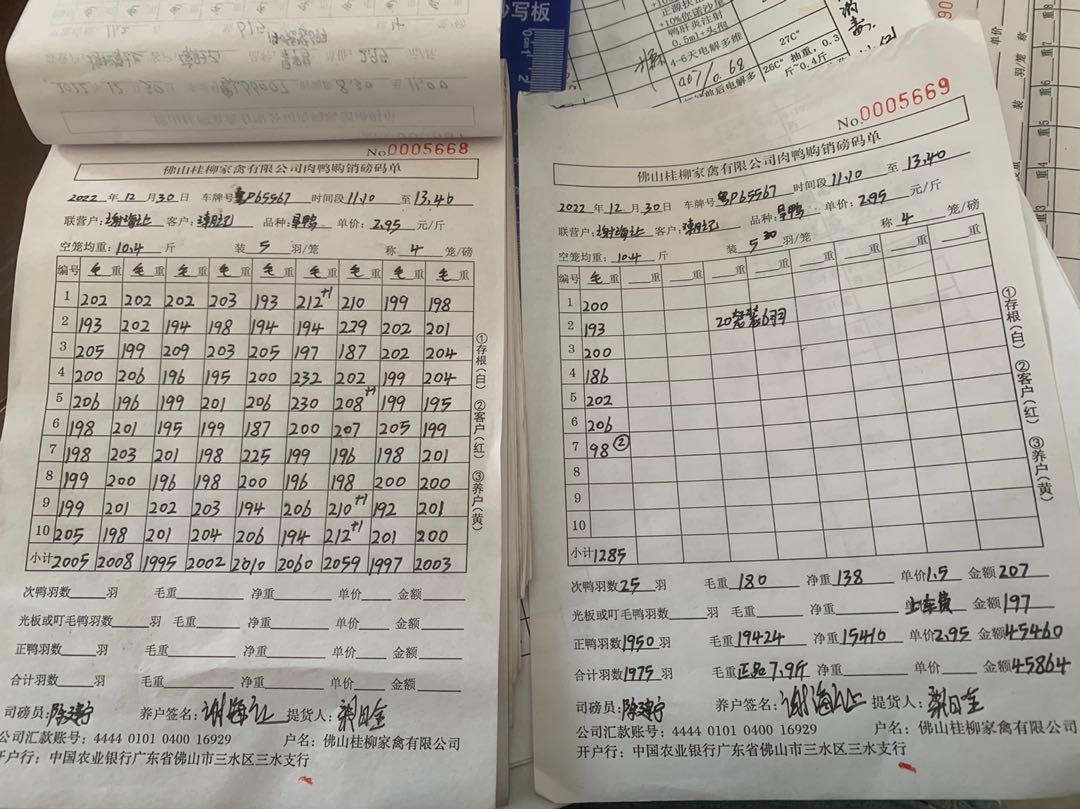 No.0005668
佛山桂柳家禽有限公司肉鸭购销磅码单
2022 年 12 月 30 日 车牌号 粤P65567 时间段 11.10 至 13.40
联营户: 谢海让 客户: 品种: 单价: 2.95 元/斤
空笼均重: 10.4 斤 装 5 羽/笼 称 4 笼/磅
编号 毛重 毛重 毛重 毛重 毛重 毛重 毛重 毛重 毛重
1 202 202 202 203 193 212+1 210 199 198
2 193 202 194 198 194 194 229 202 201
3 205 199 209 203 205 197 187 202 204
4 200 206 196 195 200 232 202 199 204
5 206 196 199 201 206 230 208+1 199 195
6 198 201 195 199 187 200 207 205 199
7 198 203 201 198 225 199 196 198 201
8 199 200 196 198 200 196 198 200 200
9 199 201 202 203 194 206 210+1 192 201
10 205 198 201 204 206 194 212+1 201 200
小计 2005 2008 1995 2002 2010 2060 2059 1997 2003
①存根(白) ②客户(红) ③养户(黄)
次鸭羽数 羽 毛重 净重 单价 金额
光板或叮毛鸭羽数 羽 毛重 净重 单价 金额
正鸭羽数 羽 毛重 净重 单价 金额
合计羽数 羽 毛重 净重 单价 金额
司磅员: 养户签名: 谢海让 提货人: 梁日全
公司汇款账号: 4444 0101 0400 16929 户名: 佛山桂柳家禽有限公司
开户行: 中国农业银行广东省佛山市三水区三水支行
No.0005669
佛山桂柳家禽有限公司肉鸭购销磅码单
2022 年 12 月 30 日 车牌号 粤P65567 时间段 11.10 至 13.40
联营户: 谢海让 客户: 品种: 单价: 2.95 元/斤
空笼均重: 10.4 斤 装 5 羽/笼 称 4 笼/磅
编号 毛重 重 重 重 重 重 重 重 重
1 200
2 193 20笼装6羽
3 200
4 186
5 202
6 206
7 98②
8
9
10
小计 1285
①存根(白) ②客户(红) ③养户(黄)
次鸭羽数 25 羽 毛重 180 净重 138 单价 1.5 金额 207
光板或叮毛鸭羽数 羽 毛重 净重 上车费 金额 197
正鸭羽数 1950 羽 毛重 19424 净重 15410 单价 2.95 金额 45460
合计羽数 1975 羽 毛重 正品7.9斤 净重 单价 金额 45864
司磅员: 养户签名: 谢海让 提货人: 梁日全
公司汇款账号: 4444 0101 0400 16929 户名: 佛山桂柳家禽有限公司
开户行: 中国农业银行广东省佛山市三水区三水支行
写板
鸭肝炎注射
0.5ml+头孢
4-6天电解多维
27C°
26C°
抽重, 0.3
斤~0.4斤